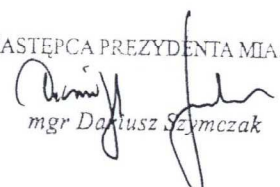 ASTĘPCA PREZYDENTA MIA
mgr Dariusz Szymczak